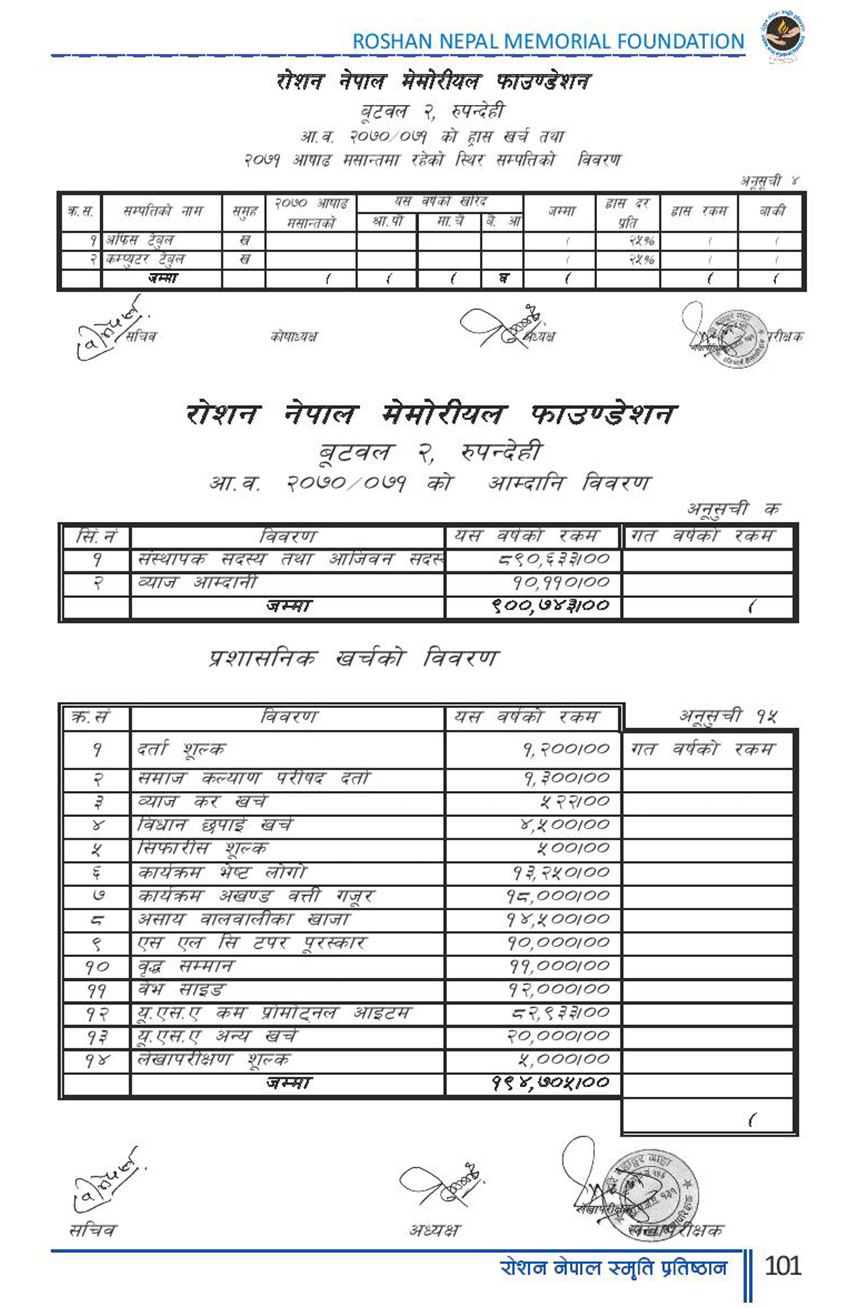 ROSHAN NEPAL MEMORIAL FOUNDATION
रोशन नेपाल मेमोरीयल फाउण्डेशन
बूटवल २, रुपन्देही
आ.व. २०७०/०७१ को ह्रास खर्च तथा
२०७१ आषाढ मसान्तमा रहेको स्थिर सम्पत्तिको विवरण
अनूसूची ४
क्र.स. सम्पत्तिको नाम समुह २०७० आषाढ मसान्तको यस वर्षको खरिद जम्मा ह्रास दर प्रति ह्रास रकम बाकी
श्रा.पौ मा.चै बै. आ
१ अफिस टेबुल ख ( २५% ( (
२ कम्प्युटर टेबुल ख ( २५% ( (
जम्मा ( ( ( ( ( (
सचिव कोषाध्यक्ष
रोशन नेपाल मेमोरीयल फाउण्डेशन
बूटवल २, रुपन्देही
आ.व. २०७०/०७१ को आम्दानि विवरण
अनूसुची क
सिं.नं विवरण यस वर्षको रकम गत वर्षको रकम
१ संस्थापक सदस्य तथा आजिवन सदस्य ८९०,६३३।००
२ व्याज आम्दानी १०,११०।००
जम्मा ९००,७४३।०० (
प्रशासनिक खर्चको विवरण
क्र.सं विवरण यस वर्षको रकम अनूसुची १५
१ दर्ता शूल्क १,२००।०० गत वर्षको रकम
२ समाज कल्याण परीषद दर्ता १,३००।००
३ व्याज कर खर्च ५२२।००
४ विधान छपाई खर्च ४,५००।००
५ सिफारीस शूल्क ५००।००
६ कार्यक्रम भेष्ट लोगो १३,२५०।००
७ कार्यक्रम अखण्ड वत्ती गजूर १८,०००।००
८ असाय वालवालीका खाजा १४,५००।००
९ एस एल सि टपर पूरस्कार १०,०००।००
१० वृद्ध सम्मान ११,०००।००
११ वेभ साइड १२,०००।००
१२ यू.एस.ए कम प्रोमोट्नल आइटम ८२,९३३।००
१३ यू.एस.ए अन्य खर्च २०,०००।००
१४ लेखापरीक्षण शूल्क ५,०००।००
जम्मा १९४,७०५।००
(
सचिव अध्यक्ष लेखापरीक्षक
रोशन नेपाल स्मृति प्रतिष्ठान 101